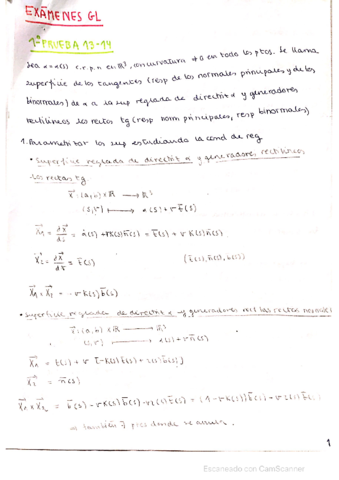 EXÁMENES GL
1ª PRUEBA 13-14
Sea α=α(s) c.r.p.n en ℝ³, con curvatura ≠0 en todo los ptos. Se llama
superficie de las tangentes (resp de las normales principales y de las
binormales) de α a la sup reglada de directriz α y generadores
rectilíneos las rectas tg (resp norm principales, resp binormales)
1. Parametrizar las sup estudiando la cond de reg
• Superficie reglada de directriz α y generadores rectilíneos
las rectas tg
X : (a,b) × ℝ → ℝ³
(s,v) ↦ α(s) + v t(s)
= t(s) + v K(s) n(s)
= t(s)
(t(s), n(s), b(s))
X₁ × X₂ = - v K(s) b(s)
• Superficie reglada de directriz α y generadores rect las rectas normales
X : (a,b) × ℝ → ℝ³
(s,v) → α(s) + v n(s)
X₁ = t(s) + v [-K(s) t(s) + τ(s) b(s)]
X₂ = n(s)
X₁ × X₂ = b(s) - v K(s) b(s) - v τ(s) t(s) = (1 - v K(s)) b(s)
también ∃ ptos donde se anula.
1
Escaneado con CamScanner